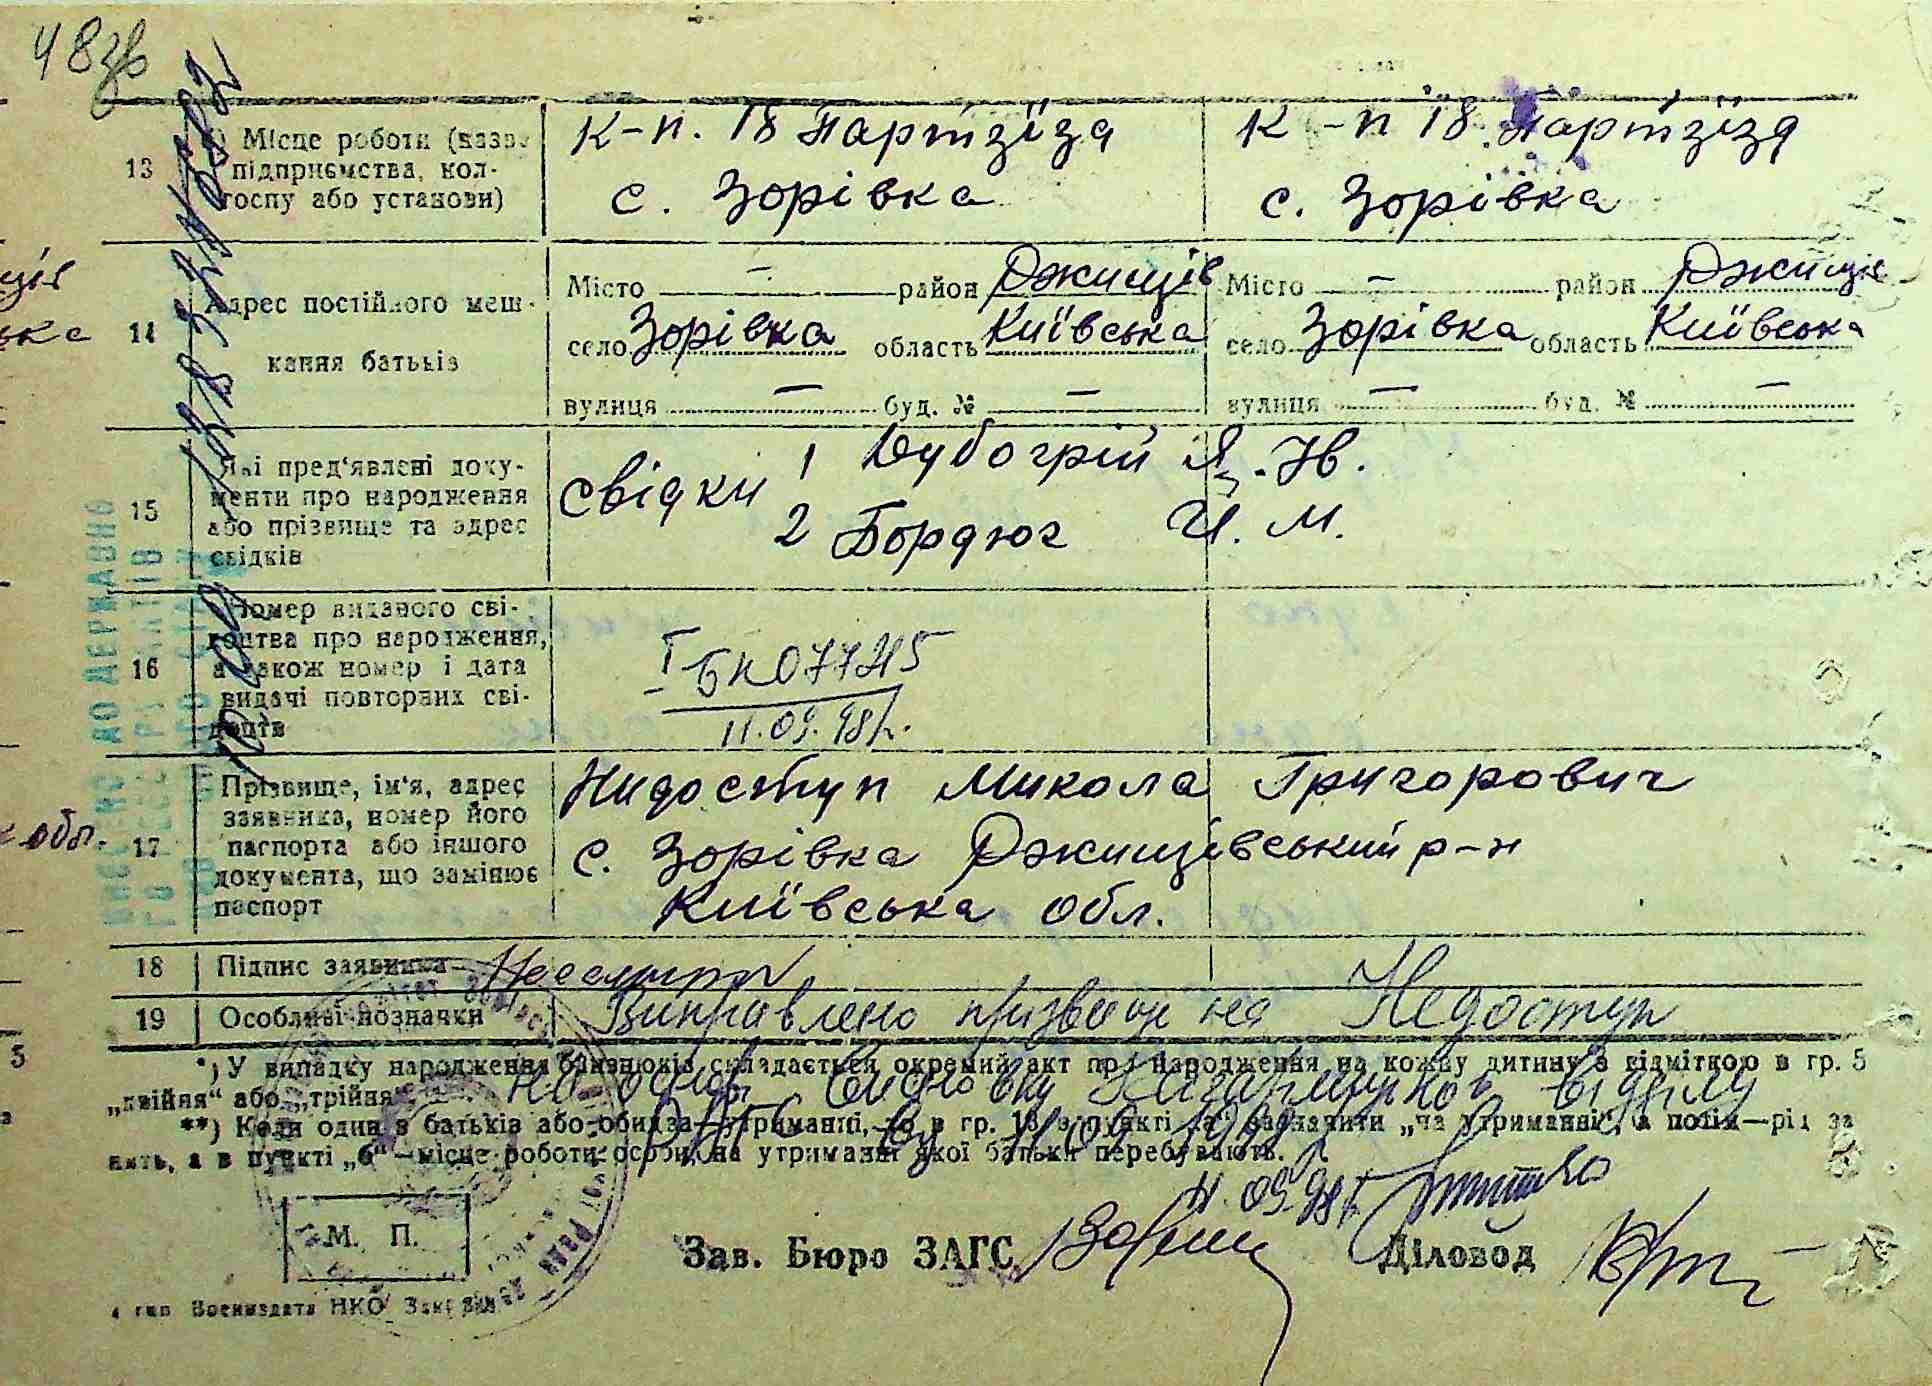 48зв
13
Місце роботи (назва
підприємства, кол-
госпу або установи)
к-п. 18 Партзїзд
с. Зорівка
к-п 18 Партзїзд
с. Зорівка
14
Адрес постійного меш-
кання батьків
Місто — район Ржищів
село Зорівка область Київська
вулиця — буд. № —
Місто — район Ржищів
село Зорівка область Київська
вулиця — буд. №  —
15
Які пред'явлені доку-
менти про народження
або прізвище та адрес
свідків
свідки 1 Дубогрій Я. Н.
2 Бордюг И. М.
16
Номер виданого сві-
доцтва про народження,
а також номер і дата
видачі повторних сві-
доцтв
11.09.98р.
17
Прізвище, ім'я, адрес
заявника, номер його
паспорта або іншого
документа, що замінює
паспорт
Нидоступ Микола Григорович
с. Зорівка Ржищівський р-н
Київська обл.
18
Підпис заявника
19
Особливі позначки
Виправлено прізвище на Недоступ
*) У випадку народження близнюків складається окремий акт про народження на кожну дитину з відміткою в гр. 5
„двійня“ або „трійня“.
на основі висновку відділу
**) Коли один з батьків або обидва—утриманці, то в гр. 13 в пункті зазначити „на утриманні“, а потім—рід за
нять, а в пункті „б“—місце роботи особи, на утриманні якої батьки перебувають.
11.09.98р.
М. П.
Зав. Бюро ЗАГС
Діловод